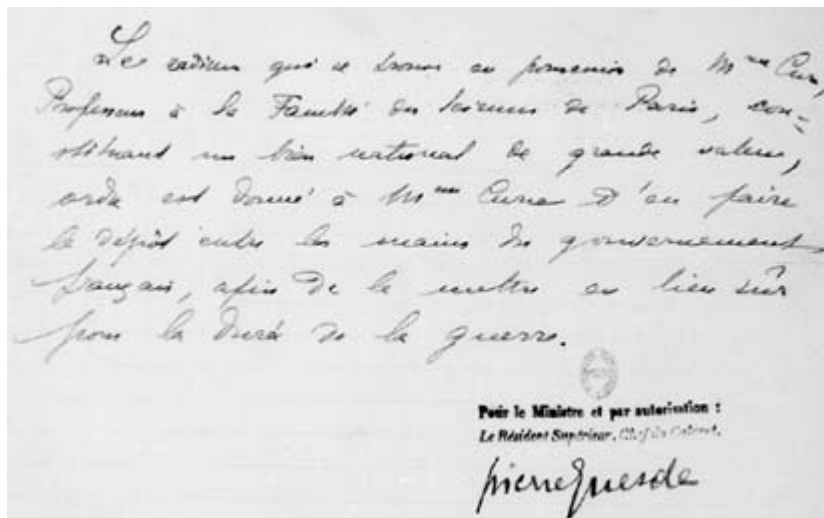 Le radium qui se trouve en possession de Mme Curie,
Professeur à la Faculté des Sciences de Paris, con-
stituant un bien national de grande valeur,
ordre est donné à Mme Curie d'en faire
le dépôt entre les mains du gouvernement
français, afin de le mettre en lieu sûr
pour la durée de la guerre.
Pour le Ministre et par autorisation :
Le Résident Supérieur, Chef du Cabinet,
pierre Guesde